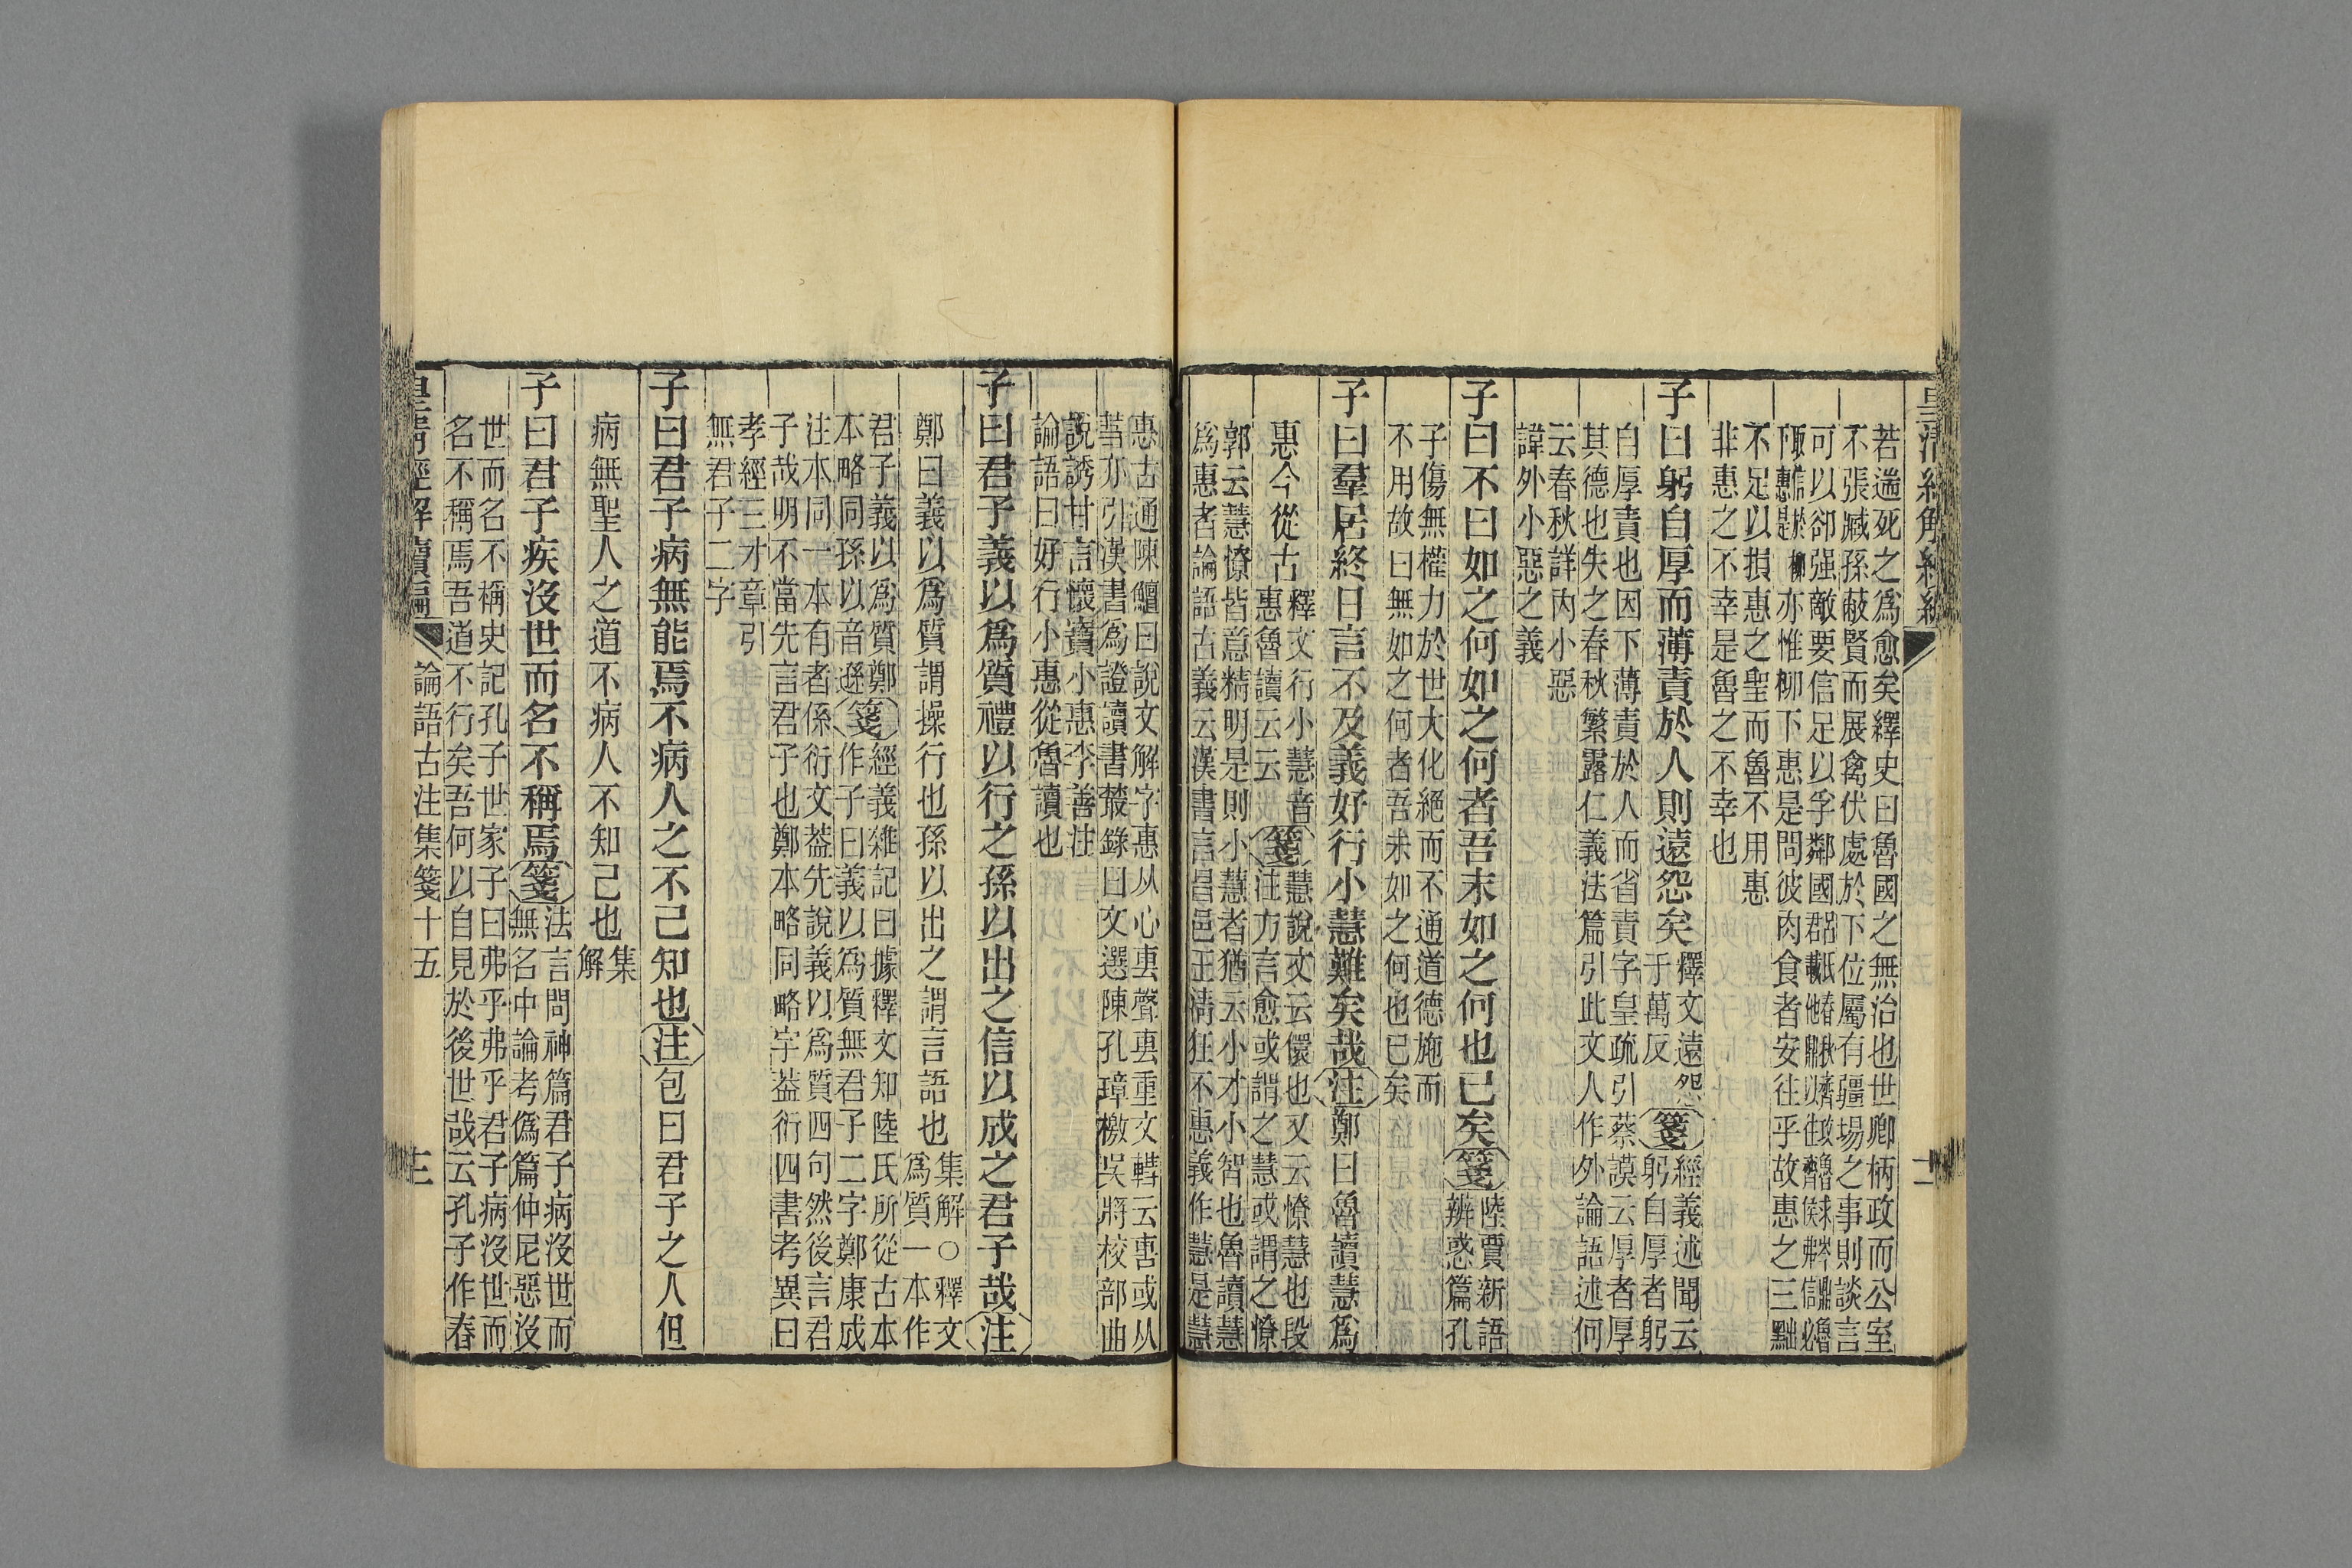 若遄死之爲愈矣繹史曰魯國之無治也世卿柄政而公室
不張臧孫蔽賢而展禽伏處於下位屬有疆場之事則談言
可以卻强敵要信足以孚鄰國
亦惟柳下惠是問彼肉食者安往乎故惠之三黜
不足以損惠之聖而魯不用惠
非惠之不幸是魯之不幸也
子曰躬自厚而薄責於人則遠怨矣
釋文遠怨
于萬反
箋
經義述聞云
躬自厚者躬
自厚責也因下薄責於人而省責字皇疏引蔡謨云厚者厚
其德也失之春秋繁露仁義法篇引此文人作外論語述何
云春秋詳內小惡
諱外小惡之義
子曰不曰如之何如之何者吾末如之何也已矣
箋
陸賈新語
辨惑篇孔
子傷無權力於世大化絕而不通道德施而
不用故曰無如之何者吾末如之何也已矣
子曰羣居終日言不及義好行小慧難矣哉
注
鄭曰魯讀慧爲
惠今從古
釋文行小慧音
惠魯讀云云
箋
慧說文云儇也又云憭慧也段
注方言愈或謂之慧或謂之憭
郭云慧憭皆意精明是則小慧者猶云小才小智也魯讀慧
爲惠者論語古義云漢書言昌邑王淸狂不惠義作慧是慧
惠古通陳鱣曰說文解字惠从心叀聲叀重文轉云㠯或从
亦引漢書爲證讀書叢錄曰文選陳孔璋檄吳將校部曲
說誘甘言懷寶小惠李善注
論語曰好行小惠從魯讀也
子曰君子義以爲質禮以行之孫以出之信以成之君子哉
注
鄭曰義以爲質謂操行也孫以出之謂言語也
集解○釋文
爲質一本作
君子義以爲質鄭
本略同孫以音遜
箋
經義雜記曰據釋文知陸氏所從古本
作子曰義以爲質無君子二字鄭康成
注本同一本有者係衍文葢先說義以爲質四句然後言君
子哉明不當先言君子也鄭本略同略字葢衍四書考異曰
孝經三才章引
無君子二字
子曰君子病無能焉不病人之不己知也
注
包曰君子之人但
病無聖人之道不病人不知己也
集
解
子曰君子疾沒世而名不稱焉
箋
法言問神篇君子病沒世而
無名中論考僞篇仲尼惡沒
世而名不稱史記孔子世家子曰弗乎弗乎君子病沒世而
名不稱焉吾道不行矣吾何以自見於後世哉云孔子作春
皇淸經解續編
論語古注集箋十五